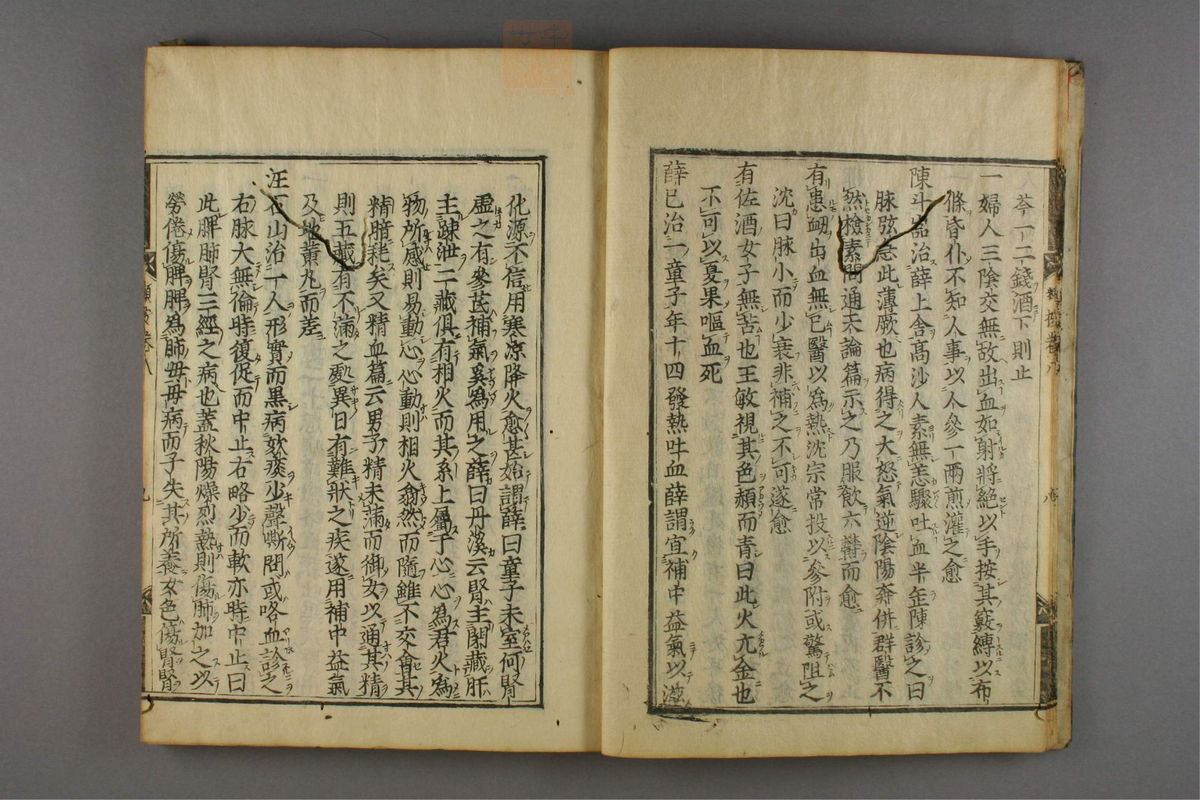 芩一二錢酒下則止
一婦人三陰交無故出血如射將絕以手按其竅縛以布
條昏仆不知人事以人參一兩煎灌之愈
陳斗嵓治薛上舍高沙人素無恙驟吐血半缶陳診之曰
脉弦急此薄厥也病得之大怒氣逆陰陽奔併群醫不
然檢素問通天論篇示之乃服飲六劑而愈
有患衂出血無已醫以為熱沈宗常投以參附或驚阻之
沈曰脉小而少衰非補之不可遂愈
有佐酒女子無苦也王敏視其色赬而青曰此火亢金也
不可以夏果嘔血死
薛已治一童子年十四發熱吐血薛謂宜補中益氣以滋
化源不信用寒凉降火愈甚始謂薛曰童子未室何腎
虛之有參芪補氣奚爲用之薛曰丹溪云腎主閉藏肝
主踈泄二藏俱有相火而其系上屬于心心為君火為
物所感則易動心心動則相火翕然而隨雖不交會其
精暗耗矣又精血篇云男子精未滿而御女以通其精
則五藏有不滿之處異日有難狀之疾遂用補中益氣
及地黄丸而差
汪石山治一人形實而黒病欬痰少聲嘶間或咯血診之
右脉大無倫時復促而中止右略少而軟亦時中止曰
此脾肺腎三經之病也蓋秋陽燥烈熱則傷肺加之以
勞倦傷脾脾為肺母母病而子失其所養女色傷腎腎